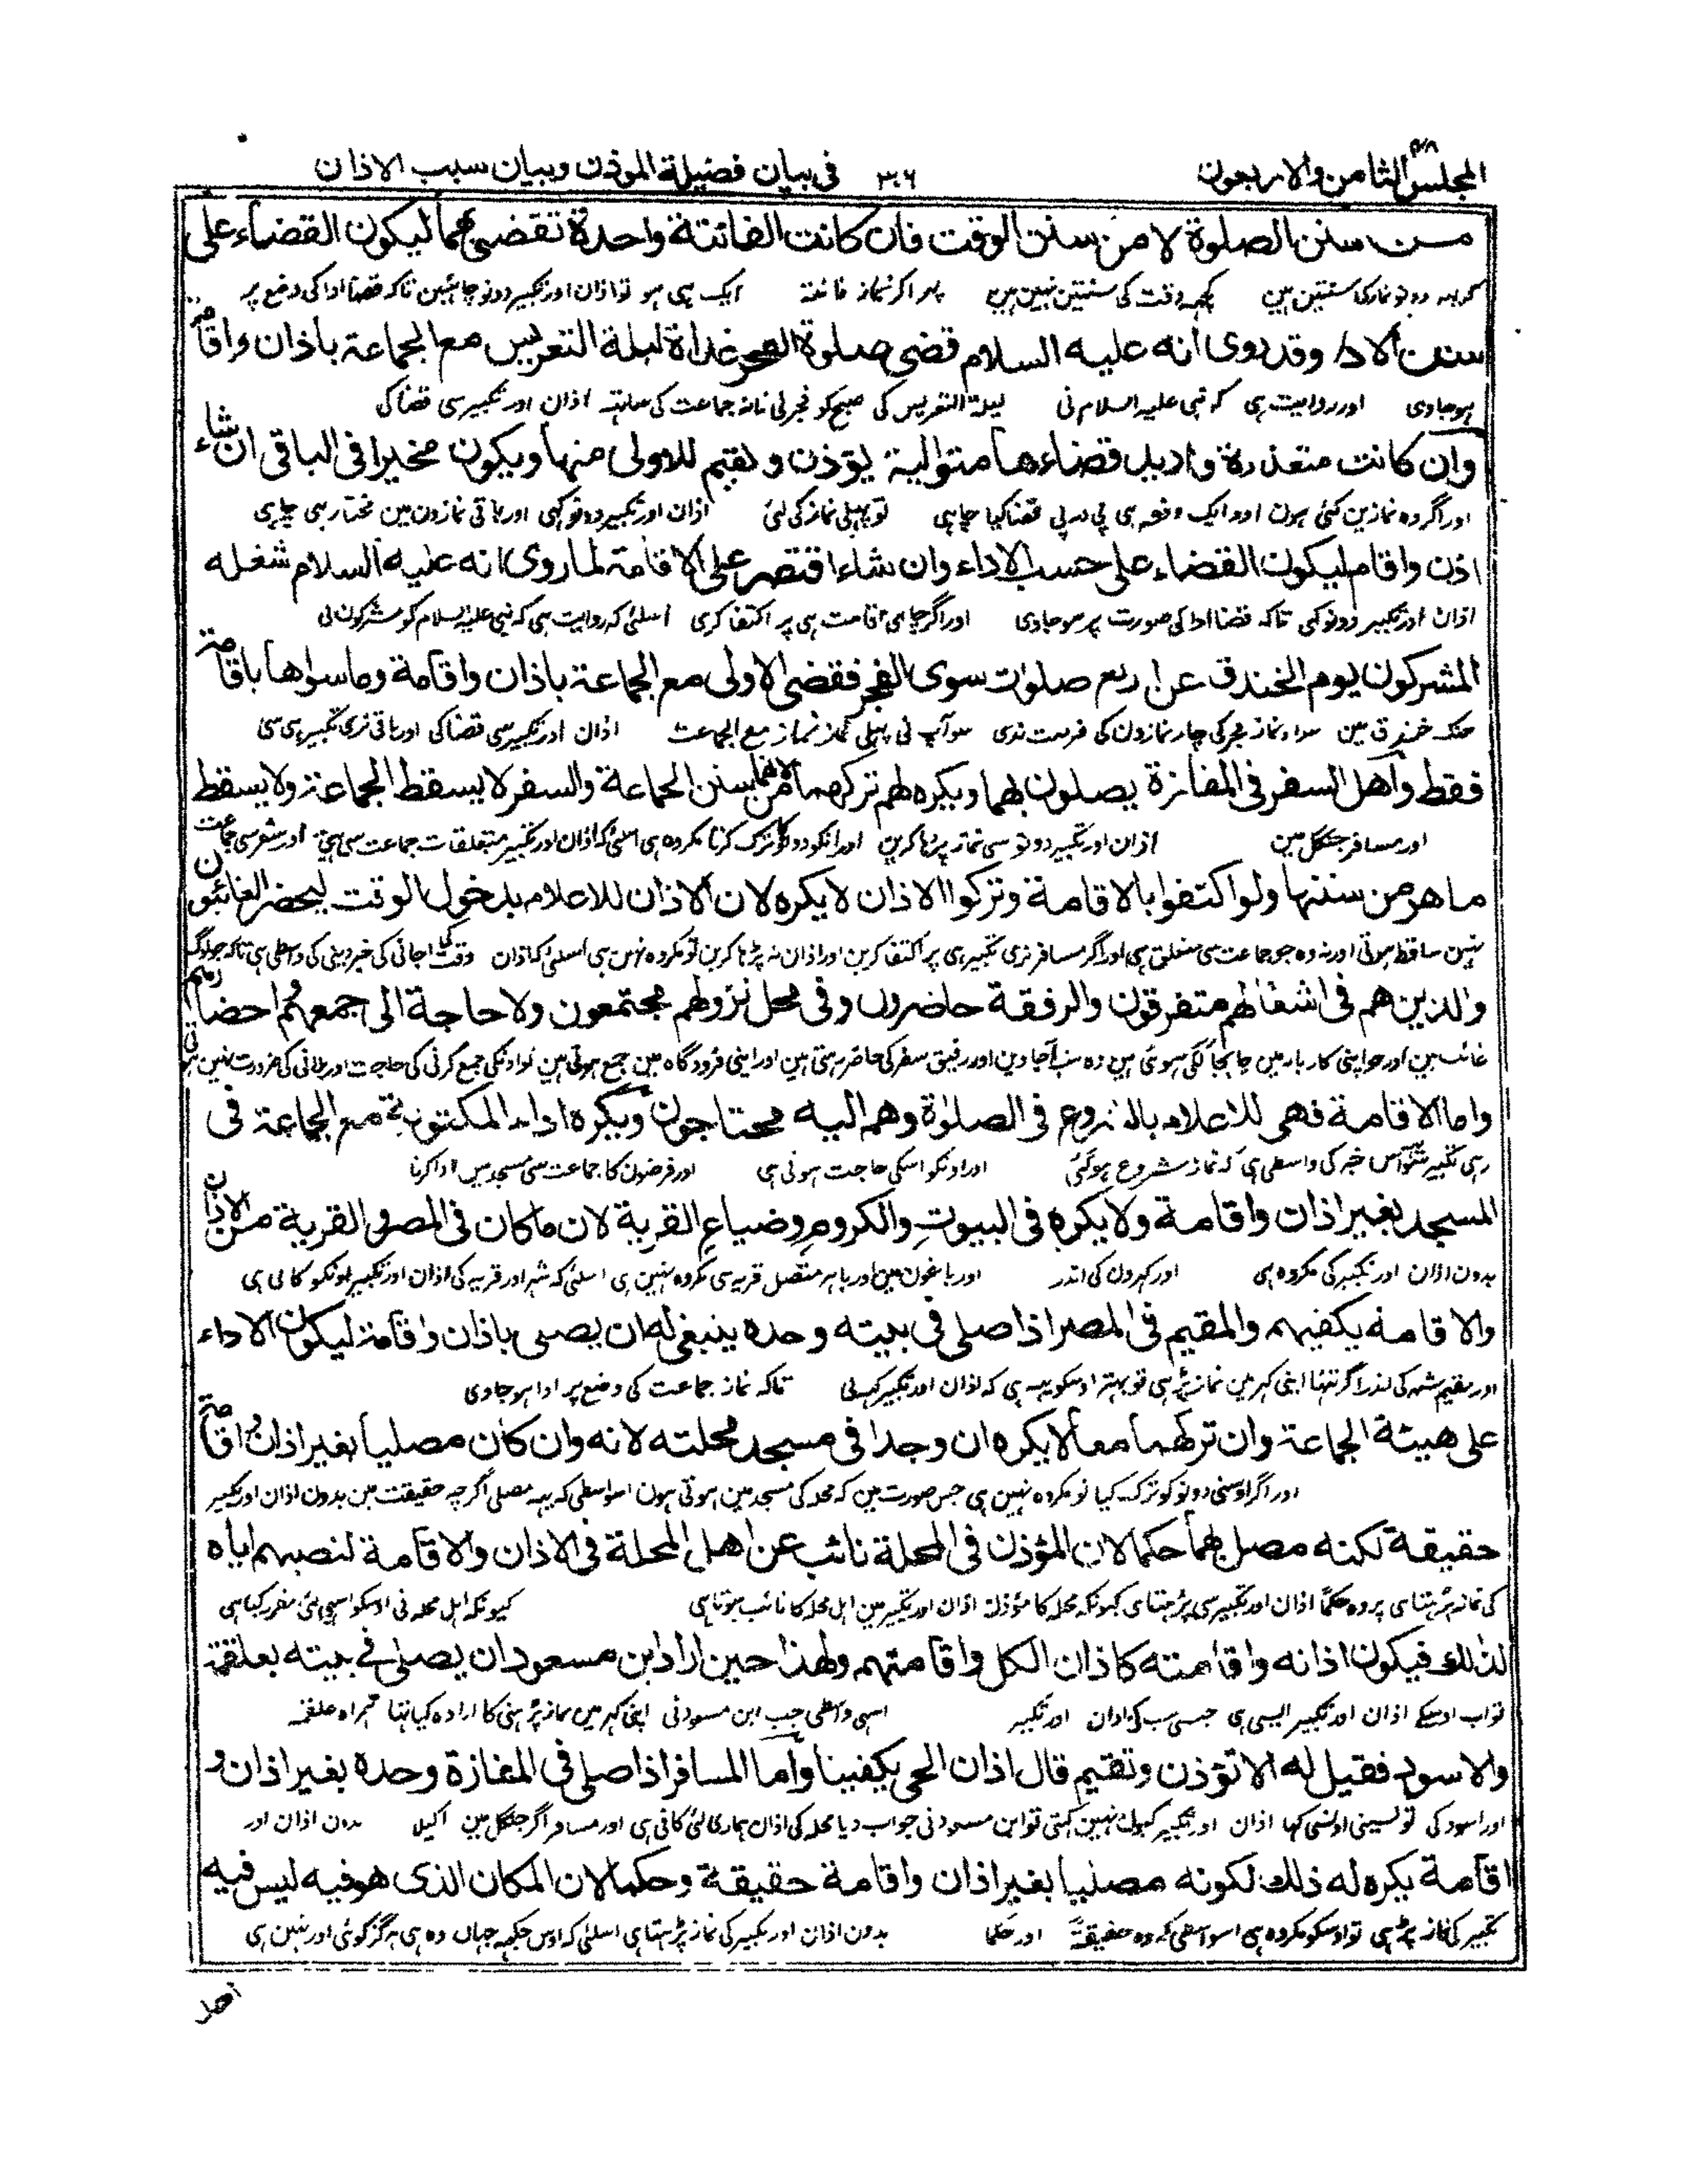 المجلس الثامن والاربعون ٣٠٦ فى بيان فضيلة الموذن وبيان سبب الاذان
من سنن الصلوة لا من سنن الوقت فان كانت الفائتة واحدة تقضى بهما ليكون القضاء على
دونو نماز کی سنتین ہین کچہہ وقت کی سنتین نہین ہین پہر اگر نماز فائتہ ایک ہی ہو تو اذان اور تکبیر دونو چاہئین تاکہ قضا ادا کی وضع پر
سنن الاداء وقد روى انه عليه السلام قضى صلوة الفجر غداة ليلة التعريس مع الجماعة باذان واقامة
ہوجاوی اور روایت ہی کہ نبی علیہ السلام نی لیلۃ التعریس کی صبح کو فجر کی نماز جماعت کی ساتہہ اذان اور تکبیر سی قضا کی
وان كانت متعددة واريد قضاءها متوالية يوذن ويقيم للاولى منها ويكون مخيرا فى الباقى ان شاء
اور اگر وہ نمازین کئی ہون اور ایک دفعہ ہی پی در پی قضا کیا چاہی تو پہلی نماز کی لئی اذان اور تکبیر دونو کہی اور باقی نمازون مین مختار ہی چاہی
اذن واقام ليكون القضاء على حسب الاداء وان شاء اقتصر على الاقامة لما روى انه عليه السلام شغله
اذان اور تکبیر دونو کہی تاکہ قضا ادا کی صورت پر ہوجاوی اور اگر چاہی اقامت ہی پر اکتفا کری اسلئی کہ روایت ہی کہ نبی علیہ السلام کو مشرکون نی
المشركون يوم الخندق عن اربع صلوات سوى الفجر فقضى الاولى مع الجماعة باذان واقامة وما سواها باقامة
جنگ خندق مین سواء نماز فجر کی چار نمازون کی فرصت ندی سو آپ نی پہلی نماز مع الجماعت اذان اور تکبیر سی قضا کی اور باقی نری تکبیر ہی سی
فقط واهل السفر فى المفازة يصلون بهما ويكره لهم تركهما لانهما من سنن الجماعة والسفر لا يسقط الجماعة ولا يسقط
اور مسافر جنگل مین اذان اور تکبیر دونو سی نماز پڑہا کرین اور انکو دونو کا ترک کرنا مکروہ ہی اسلئی کہ اذان اور تکبیر متعلقات جماعت سی ہی اور سفر سی جماعت
ما هو من سننها ولو اكتفوا بالاقامة وتركوا الاذان لا يكره لان الاذان للاعلام بدخول الوقت ليحضر الغائبون
نہین ساقط ہوتی اور نہ وہ جو جماعت سی متعلق ہی اور اگر مسافر نری تکبیر ہی پر اکتفا کرین اور اذان نہ پڑہا کرین تو مکروہ نہین ہی اسلئی کہ اذان وقت کی اجانی کی خبر دینی کی واسطی ہی تاکہ جو لوگ
والذين هم فى اشغالهم متفرقون والرفقة حاضرون وفى محل نزولهم مجتمعون ولا حاجة الى جمعهم واحضارهم
غائب ہین اور جو اپنی کاربار مین جابجا لگی ہوئی ہین وہ سب آجاوین اور رفیق سفر کی حاضر رہتی ہین اور اپنی فرودگاہ مین جمع ہوتی ہین تو اونکی جمع کرنی کی حاجت اور بلانی کی ضرورت نہین ہوتی
واما الاقامة فهى للاعلام بالشروع فى الصلوة وهم اليه محتاجون ويكره اداء المكتوبة مع الجماعة فى
رہی تکبیر سو اس خبر کی واسطی ہی کہ نماز شروع ہوگئی اور اونکو اسکی حاجت ہوتی ہی اور فرضون کا جماعت سی مسجد مین ادا کرنا
المسجد بغير اذان واقامة ولا يكره فى البيوت والكروم وضياع القرية لان ما كان فى المصر والقرية من الاذان
بدون اذان اور تکبیر کی مکروہ ہی اور گہرون کی اندر اور باغون مین اور باہر متصل قریہ سی مکروہ نہین ہی اسلئی کہ شہر اور قریہ کی اذان اور تکبیر اونکو کافی ہی
والاقامة يكفيهم والمقيم فى المصر اذا صلى فى بيته وحده ينبغى له ان يصلى باذان واقامة ليكون الاداء
اور مقیم شہر کی اندر اگر تنہا اپنی گہر مین نماز پڑہی تو بہتر اوسکو یہہ ہی کہ اذان اور تکبیر کہہ لی تاکہ نماز جماعت کی وضع پر ادا ہوجاوی
على هيئة الجماعة وان تركهما معا لا يكره ان وجدا فى مسجد محلته لانه وان كان مصليا بغير اذان واقامة
اور اگر اوسنی دونو کو ترک کیا تو مکروہ نہین ہی جس صورت مین کہ محلہ کی مسجد مین ہوتی ہون اسواسطی کہ یہہ مصلی اگرچہ حقیقت مین بدون اذان اور تکبیر
حقيقة لكنه مصل بهما حكما لان المؤذن فى المحلة نائب عن اهل المحلة فى الاذان والاقامة لنصبهم اياه
کی نماز پڑہتا ہی پر وہ حکماً اذان اور تکبیر سی پڑہتا ہی کیونکہ محلہ کا مؤذن اذان اور تکبیر مین اہل محلہ کا نائب ہوتا ہی کیونکہ اہل محلہ نی اوسکو اسی لئی مقرر کیا ہی
لذلك فيكون اذانه واقامته كاذان الكل واقامتهم ولهذا حين اراد ابن مسعود ان يصلى فى بيته بعلقمة
تو اب اوسکے اذان اور تکبیر ایسی ہی جیسی سب کی اذان اور تکبیر اسی واسطی جب ابن مسعود نی اپنی گہر مین نماز پڑہنی کا ارادہ کیا تہا ہمراہ علقمہ
والاسود فقيل له الا تؤذن وتقيم قال اذان الحى يكفينا واما المسافر اذا صلى فى المفازة وحده بغير اذان و
اور اسود کی تو کسینی اونسی کہا اذان اور تکبیر کیون نہین کہتی تو ابن مسعود نی جواب دیا محلہ کی اذان ہماری لئی کافی ہی اور مسافر اگر جنگل مین اکیلا بدون اذان اور
اقامة يكره له ذلك لكونه مصليا بغير اذان واقامة حقيقة وحكما لان المكان الذى هو فيه ليس فيه
تکبیر کی نماز پڑہی تو اوسکو مکروہ ہی اسواسطی کہ وہ حقیقۃً اور حکما بدون اذان اور تکبیر کی نماز پڑہتا ہی اسلئی کہ اوس جگہہ جہان وہ ہی ہرگز کوئی اور نہین ہی